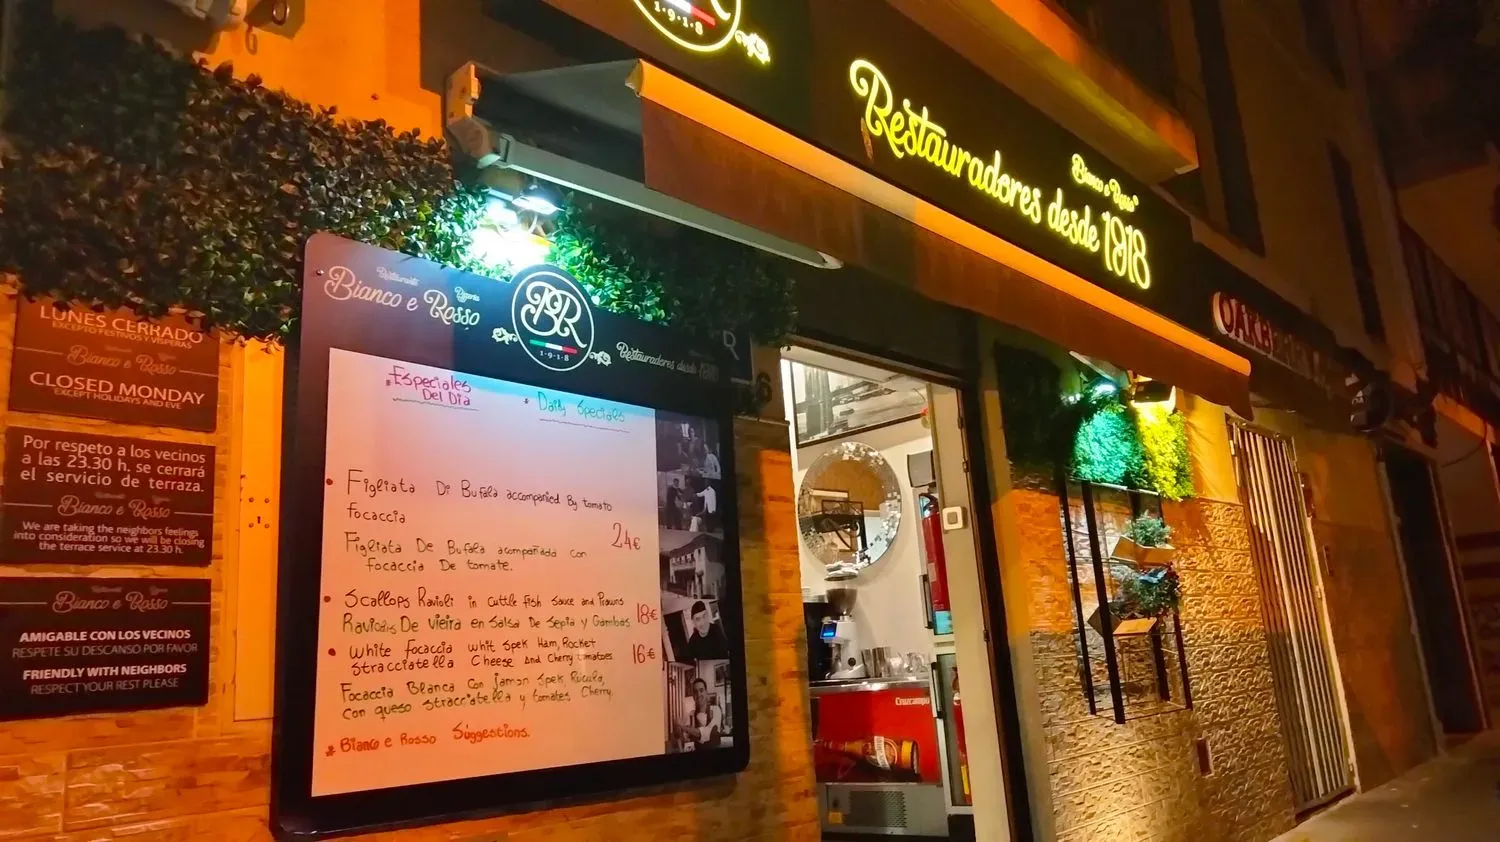 1·9·1·8
Bianco e Rosso
Restauradores desde 1918
OAKB
LUNES CERRADO
EXCEPTO FESTIVOS Y VÍSPERAS
Bianco e Rosso
CLOSED MONDAY
EXCEPT HOLIDAYS AND EVE
Por respeto a los vecinos
a las 23.30 h. se cerrará
el servicio de terraza.
Bianco e Rosso
We are taking the neighbors feelings
into consideration so we will be closing
the terrace service at 23.30 h.
Bianco e Rosso
AMIGABLE CON LOS VECINOS
RESPETE SU DESCANSO POR FAVOR
FRIENDLY WITH NEIGHBORS
RESPECT YOUR REST PLEASE
Restaurante Pizzeria
Bianco e Rosso
BR
1·9·1·8
Restauradores desde 1918
Especiales
Del Dia
* Daily Specials
• Figliata Di Bufala accompanied By tomato
focaccia
24€
Figliata De Bufala acompañada con
focaccia De tomate.
• Scallops Ravioli in cuttle fish sauce and Prawns
18€
Ravioles De vieira en salsa De sepia y Gambas
• White focaccia whit Spek Ham, Rocket
16€
stracciatella Cheese and Cherry tomatoes
Focaccia Blanca con jamon Spek, Rucula,
con queso stracciatella y tomates Cherry.
* Bianco e Rosso Suggestions.
Cruzcampo